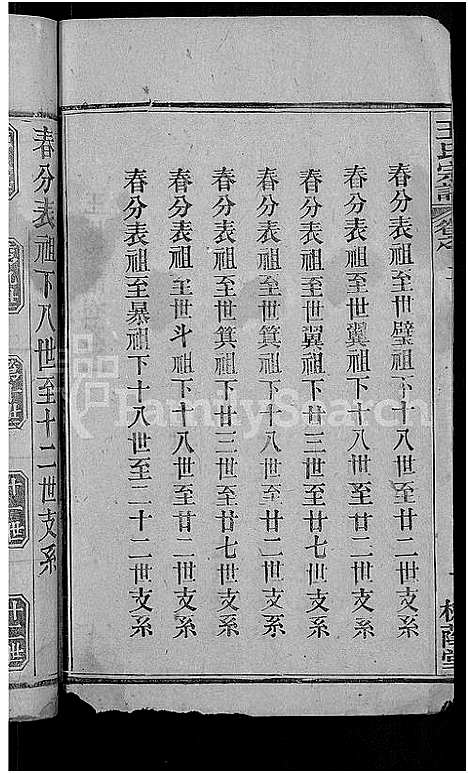 王氏宗譜
春分表祖至世璧祖下十八世至廿二世支系
春分表祖至世翼祖下十八世至廿二世支系
春分表祖至世翼祖下廿三世至廿七世支系
春分表祖至世箕祖下十八世至廿二世支系
春分表祖至世箕祖下廿三世至廿七世支系
春分表祖至世斗祖下十八世至廿二世支系
春分表祖至暴祖下十八世至二十二世支系
春分表祖下八世至十二世支系
FamilySearch